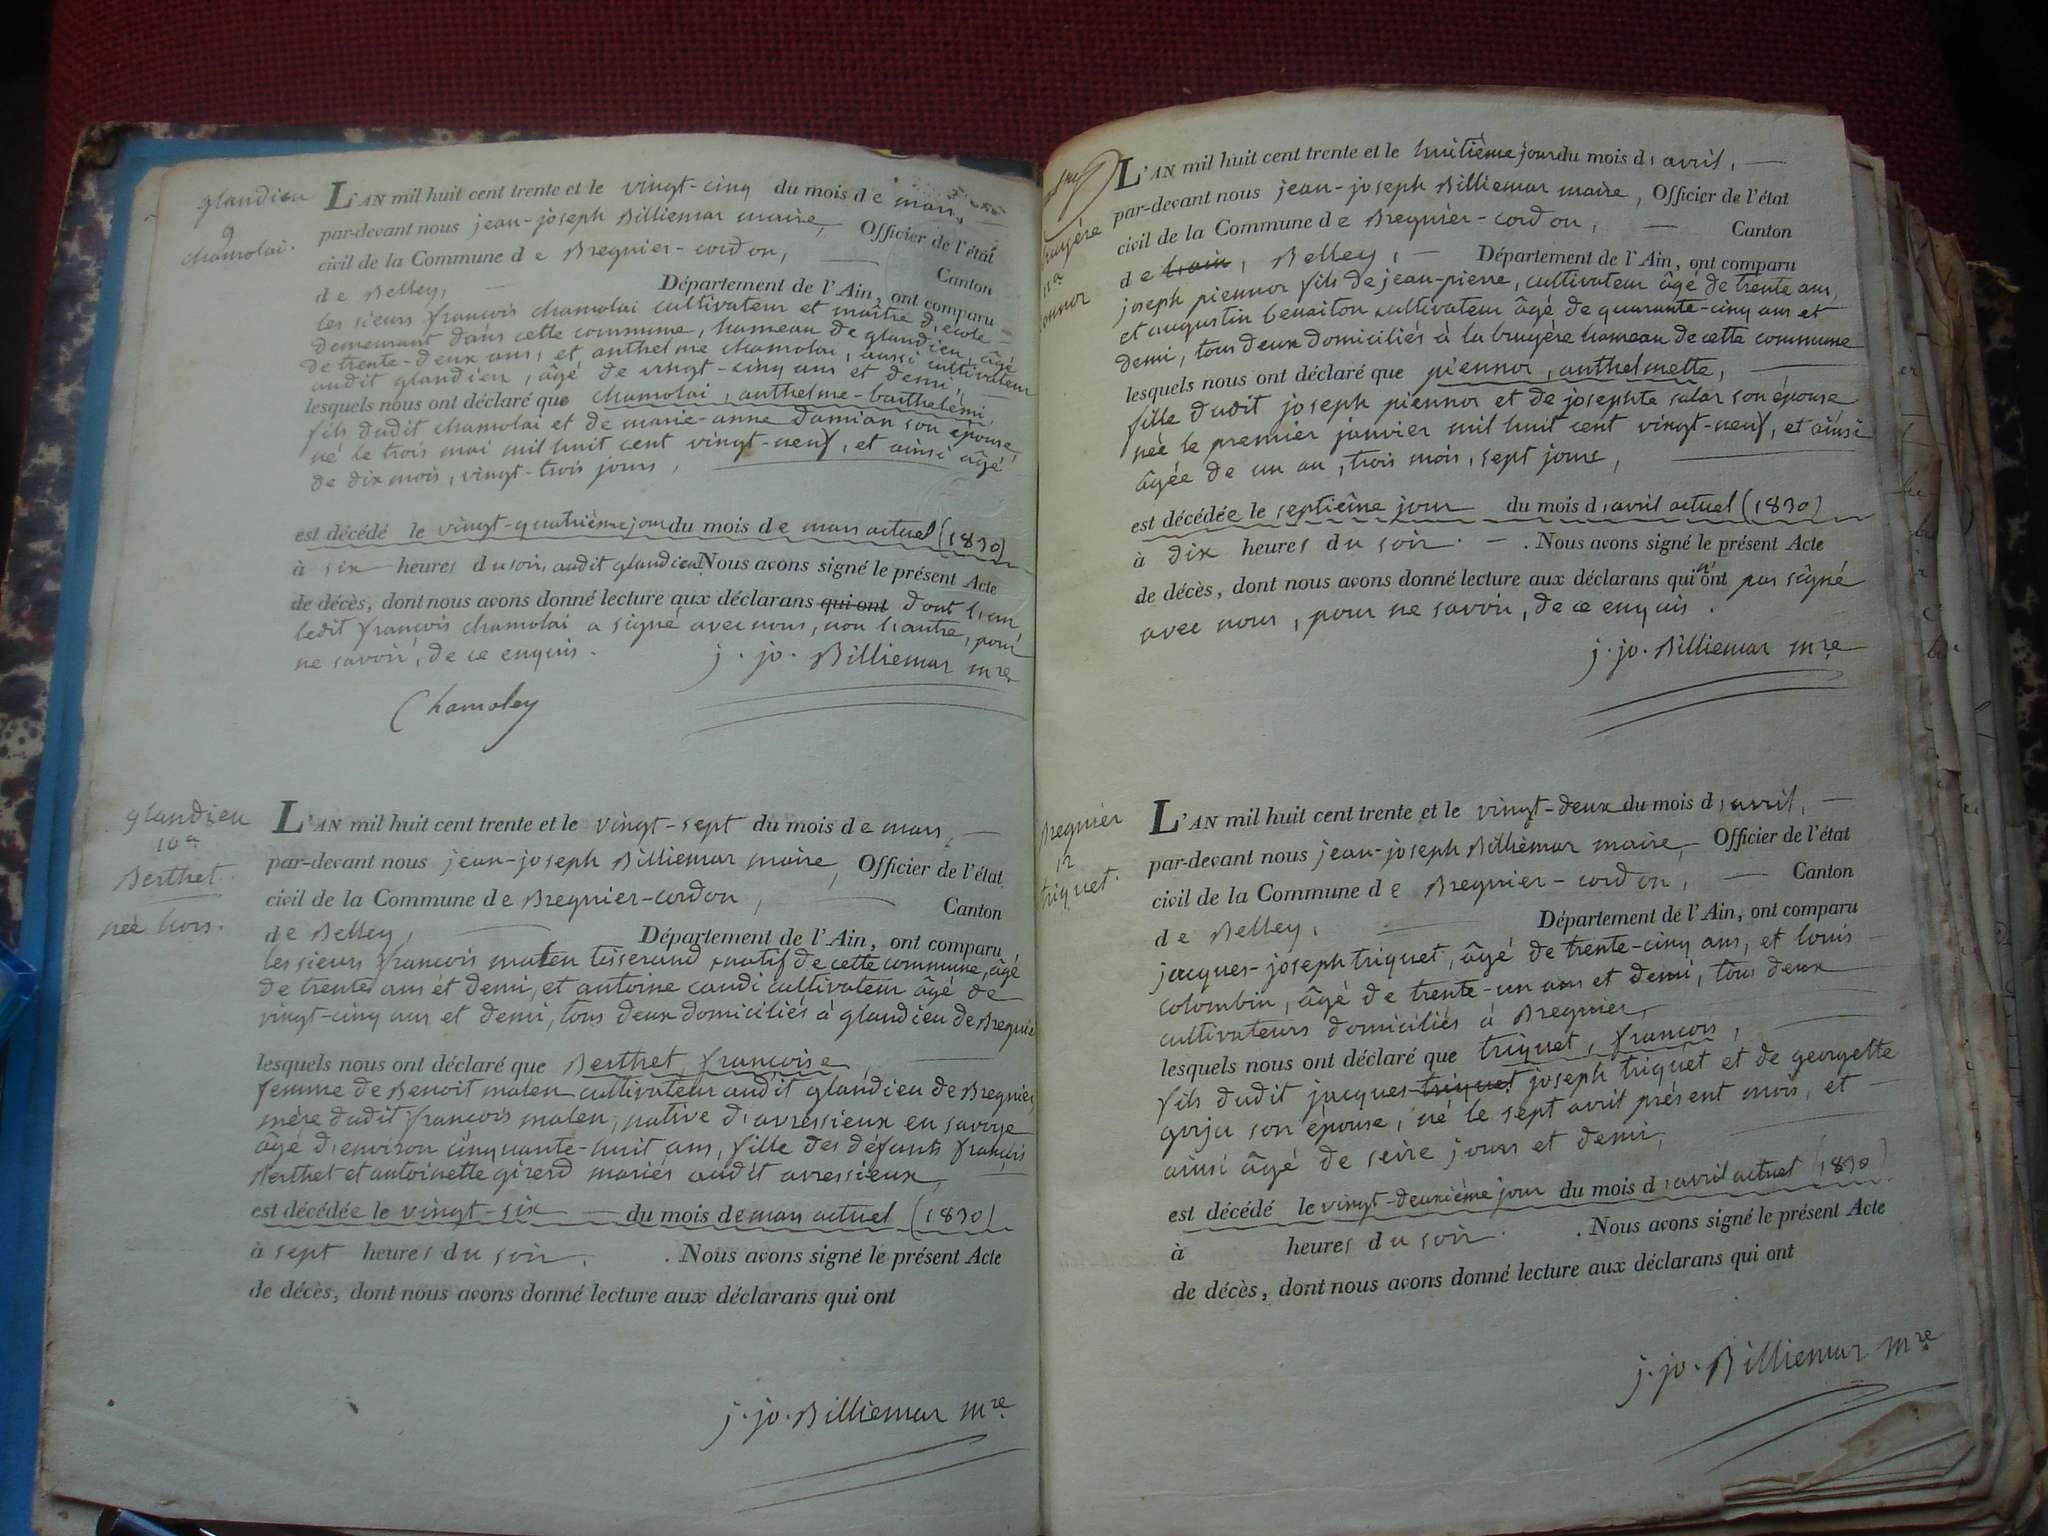 glandieu
9
chamolai.
L'AN mil huit cent trente et le vingt-cinq du mois de mars,
par-devant nous jean-joseph Billiemar maire, Officier de l'état
civil de la Commune de Bregnier-cordon, Canton
de Belley, Département de l'Ain, ont comparu
les sieurs françois chamolai cultivateur et maître d'école
demeurant dans cette commune, hameau de glandieu, âgé
de trente-deux ans, et anthelme chamolai, aussi cultivateur
audit glandieu, âgé de vingt-cinq ans et demi,
lesquels nous ont déclaré que chamolai, anthelme-barthelemi
fils dudit chamolai et de marie-anne damian son épouse,
né le trois mai mil huit cent vingt-neuf, et ainsi âgé
de dix mois, vingt-trois jours,
est décédé le vingt-quatrième jour du mois de mars actuel (1830)
à six heures du soir, audit glandieu. Nous avons signé le présent Acte
de décès, dont nous avons donné lecture aux déclarans qui ont dont l'un
ledit françois chamolai a signé avec nous, non l'autre, pour
ne savoir, de ce enquis. j. jo. Billiemar mre
Chamoley
glandieu
10
Berthet.
née hors.
L'AN mil huit cent trente et le vingt-sept du mois de mars,
par-devant nous jean-joseph Billiemar maire, Officier de l'état
civil de la Commune de Bregnier-cordon, Canton
de Belley, Département de l'Ain, ont comparu
les sieurs françois malen tisserand, natif de cette commune, âgé
de trente ans et demi, et antoine caudi cultivateur âgé de
vingt-cinq ans et demi, tous deux domiciliés à glandieu de Bregnier
lesquels nous ont déclaré que Berthet, françoise,
femme de Benoit malen cultivateur audit glandieu de Bregnier,
mère dudit françois malen, native d'avressieux en savoye
âgé d'environ cinquante-huit ans, fille des défunts françois
Berthet et antoinette girerd mariés audit avressieux,
est décédée le vingt-six du mois de mars actuel (1830)
à sept heures du soir. . Nous avons signé le présent Acte
de décès, dont nous avons donné lecture aux déclarans qui ont
j. jo. Billiemar mre
L'AN mil huit cent trente et le huitième jour du mois d'avril,
par-devant nous jean-joseph Billiemar maire, Officier de l'état
civil de la Commune de Bregnier-cordon, Canton
de Belley, Département de l'Ain, ont comparu
joseph piennor fils de jean-pierre, cultivateur âgé de trente ans,
et augustin benaiton cultivateur âgé de quarante-cinq ans et
demi, tous deux domiciliés à la bruyère hameau de cette commune
lesquels nous ont déclaré que piennor, anthelmette,
fille dudit joseph piennor et de josephte salar son épouse
née le premier janvier mil huit cent vingt-neuf, et ainsi
âgée de un an, trois mois, sept jours,
est décédée le septième jour du mois d'avril actuel (1830)
à dix heures du soir. . Nous avons signé le présent Acte
de décès, dont nous avons donné lecture aux déclarans qui n'ont pas signé
avec nous, pour ne savoir, de ce enquis.
j. jo. Billiemar mre
Bregnier
12
triquet.
L'AN mil huit cent trente et le vingt-deux du mois d'avril,
par-devant nous jean-joseph Billiemar maire, Officier de l'état
civil de la Commune de Bregnier-cordon, Canton
de Belley, Département de l'Ain, ont comparu
jacques-joseph triquet, âgé de trente-cinq ans, et louis
colombin, âgé de trente-un ans et demi, tous deux
cultivateurs domiciliés à Bregnier,
lesquels nous ont déclaré que triquet, françois,
fils dudit jacques-triquet joseph triquet et de georgette
gorju son épouse, né le sept avril présent mois, et
ainsi âgé de seize jours et demi,
est décédé le vingt-deuxième jour du mois d'avril actuel (1830)
à heures du soir. . Nous avons signé le présent Acte
de décès, dont nous avons donné lecture aux déclarans qui ont
j. jo. Billiemar mre